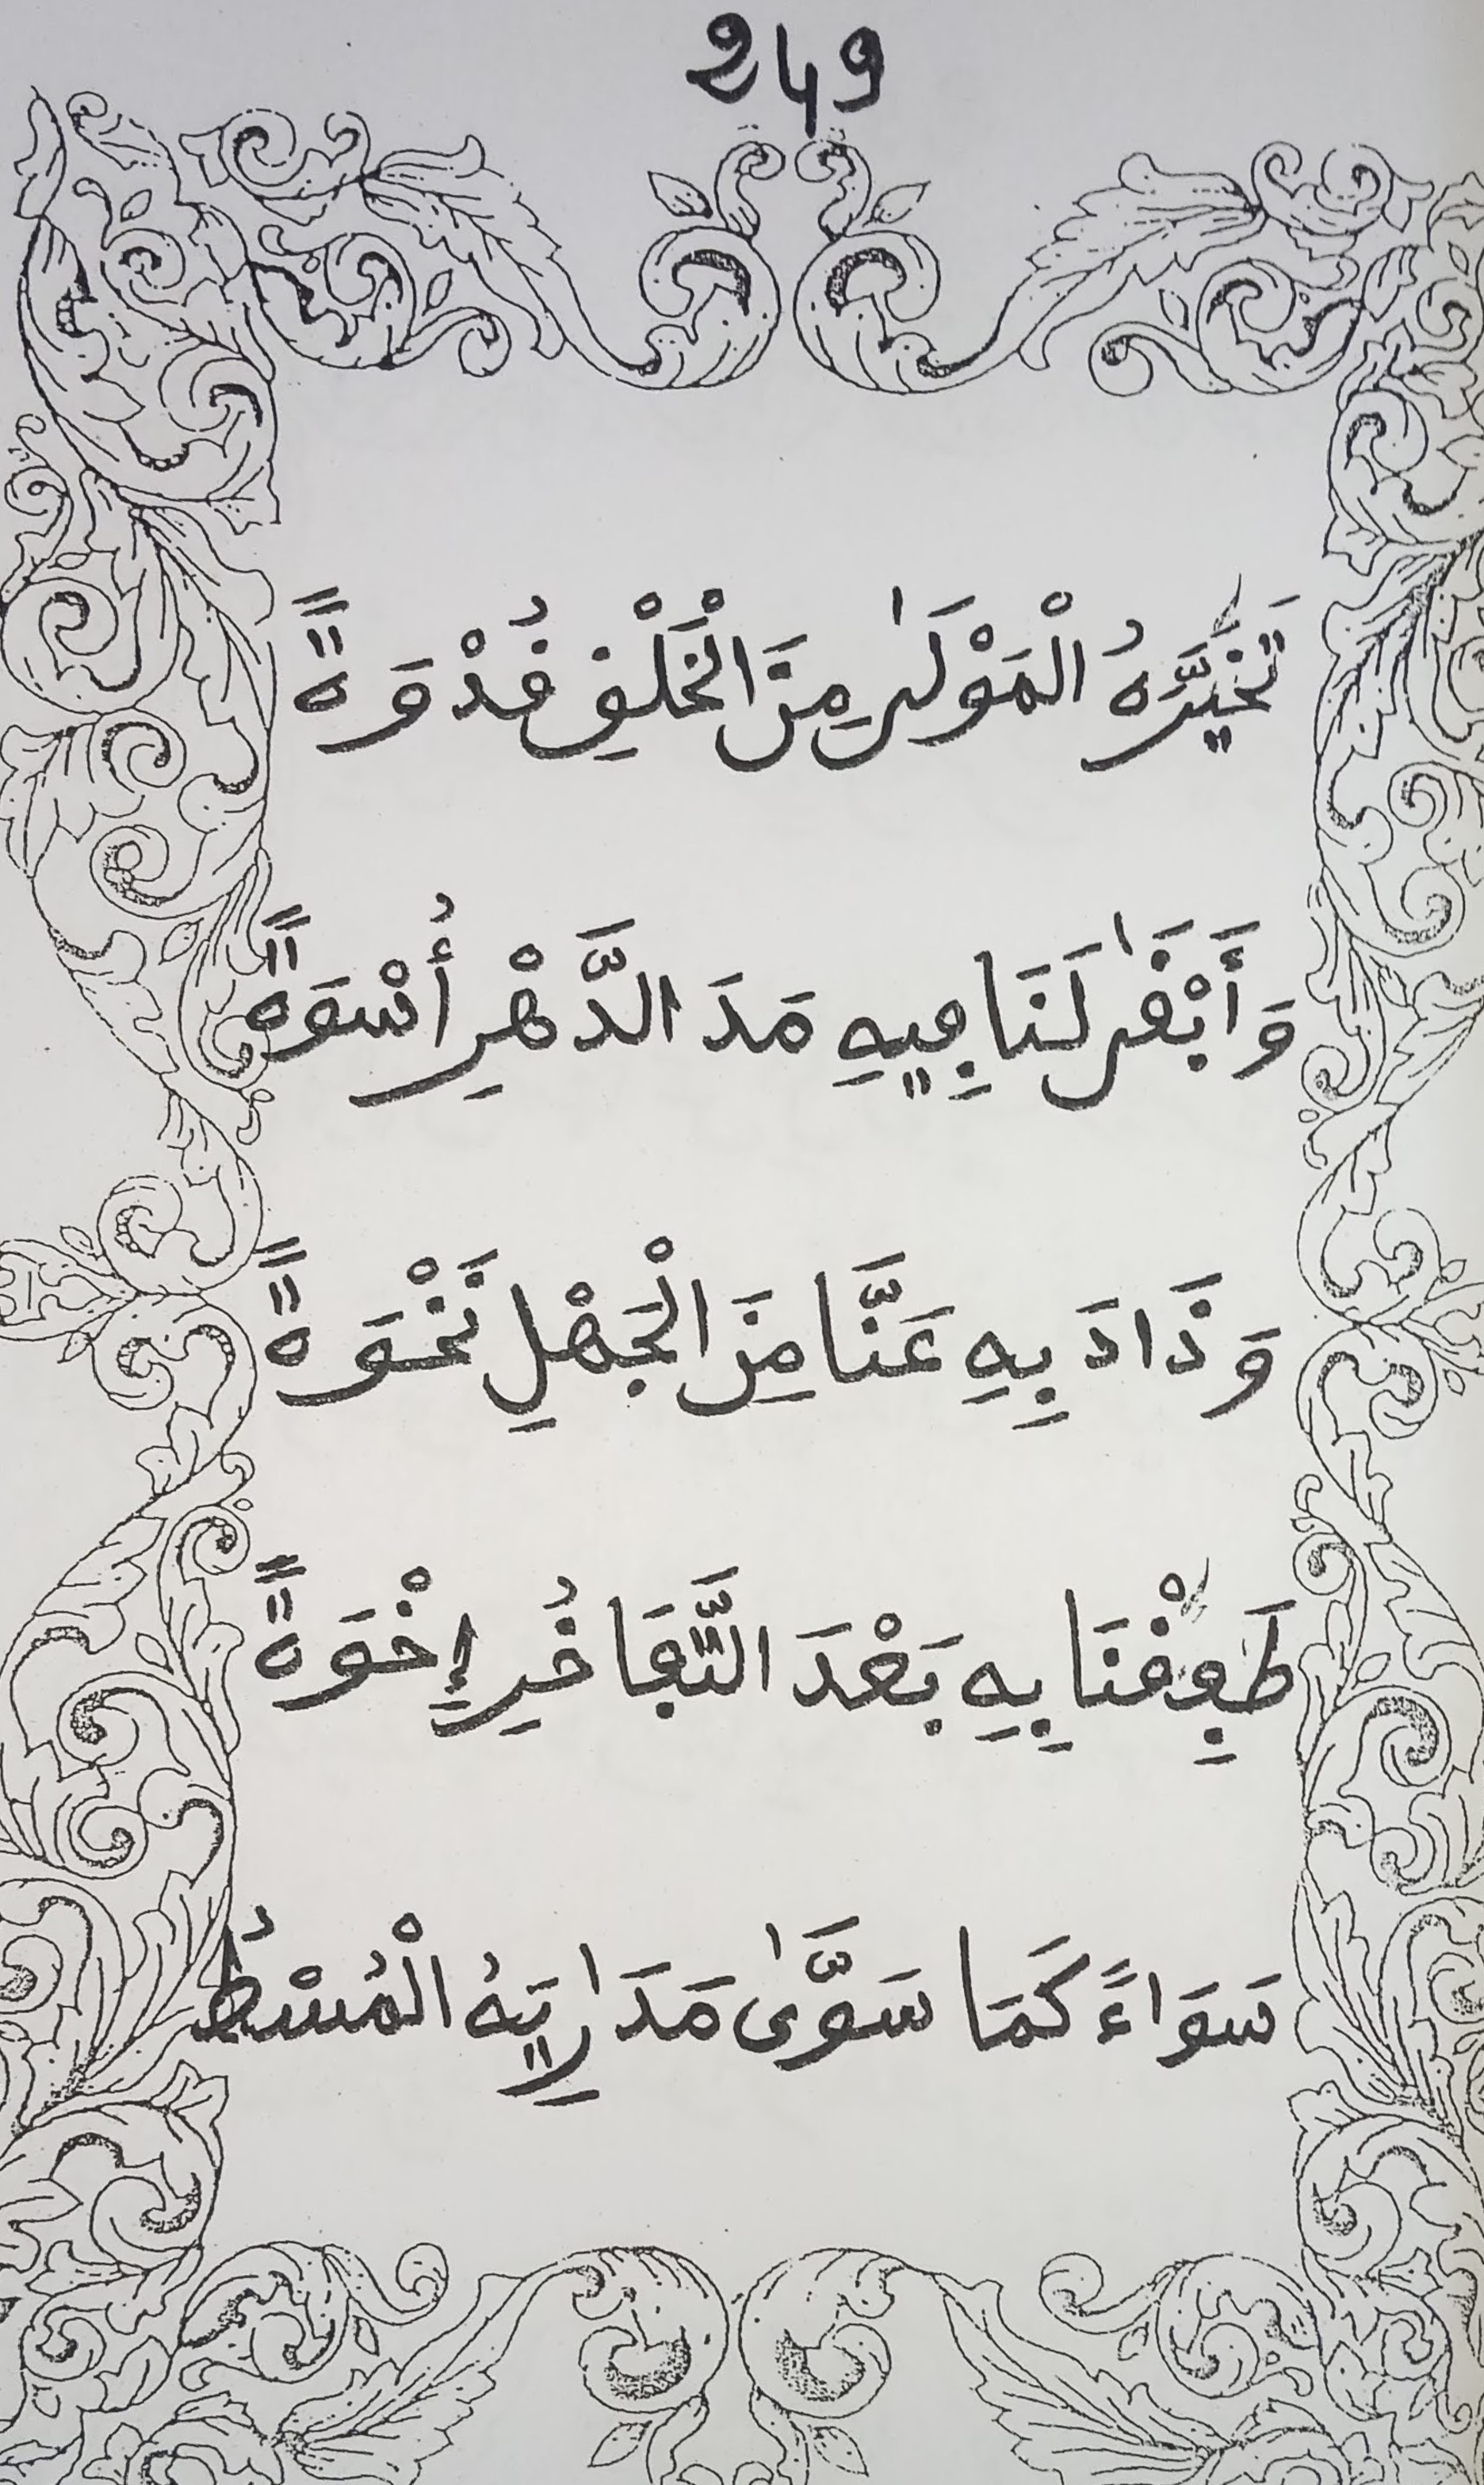 249
تَخَيَّرَهُ الْمَوْلَىٰ مِنَ الْخَلْقِ قُدْوَةً
وَأَبْقَىٰ لَنَا فِيهِ مَدَ الدَّهْرِ أُسْوَةً
وَذَادَ بِهِ عَنَّا مِنَ الْجَهْلِ نَخْوَةً
طَفِقْنَا بِهِ بَعْدَ التَّفَاخُرِ إِخْوَةً
سَوَاءً كَمَا سَوَّىٰ مَدَارِيَهُ الْمُسْطُ